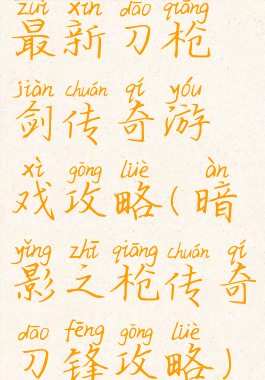 zuì xīn dāo qiāng
最新刀枪
jiàn chuán qí yóu
剑传奇游
xì gōng lüè àn
戏攻略(暗
yǐng zhī qiāng chuán qí
影之枪传奇
dāo fēng gōng lüè
刀锋攻略)